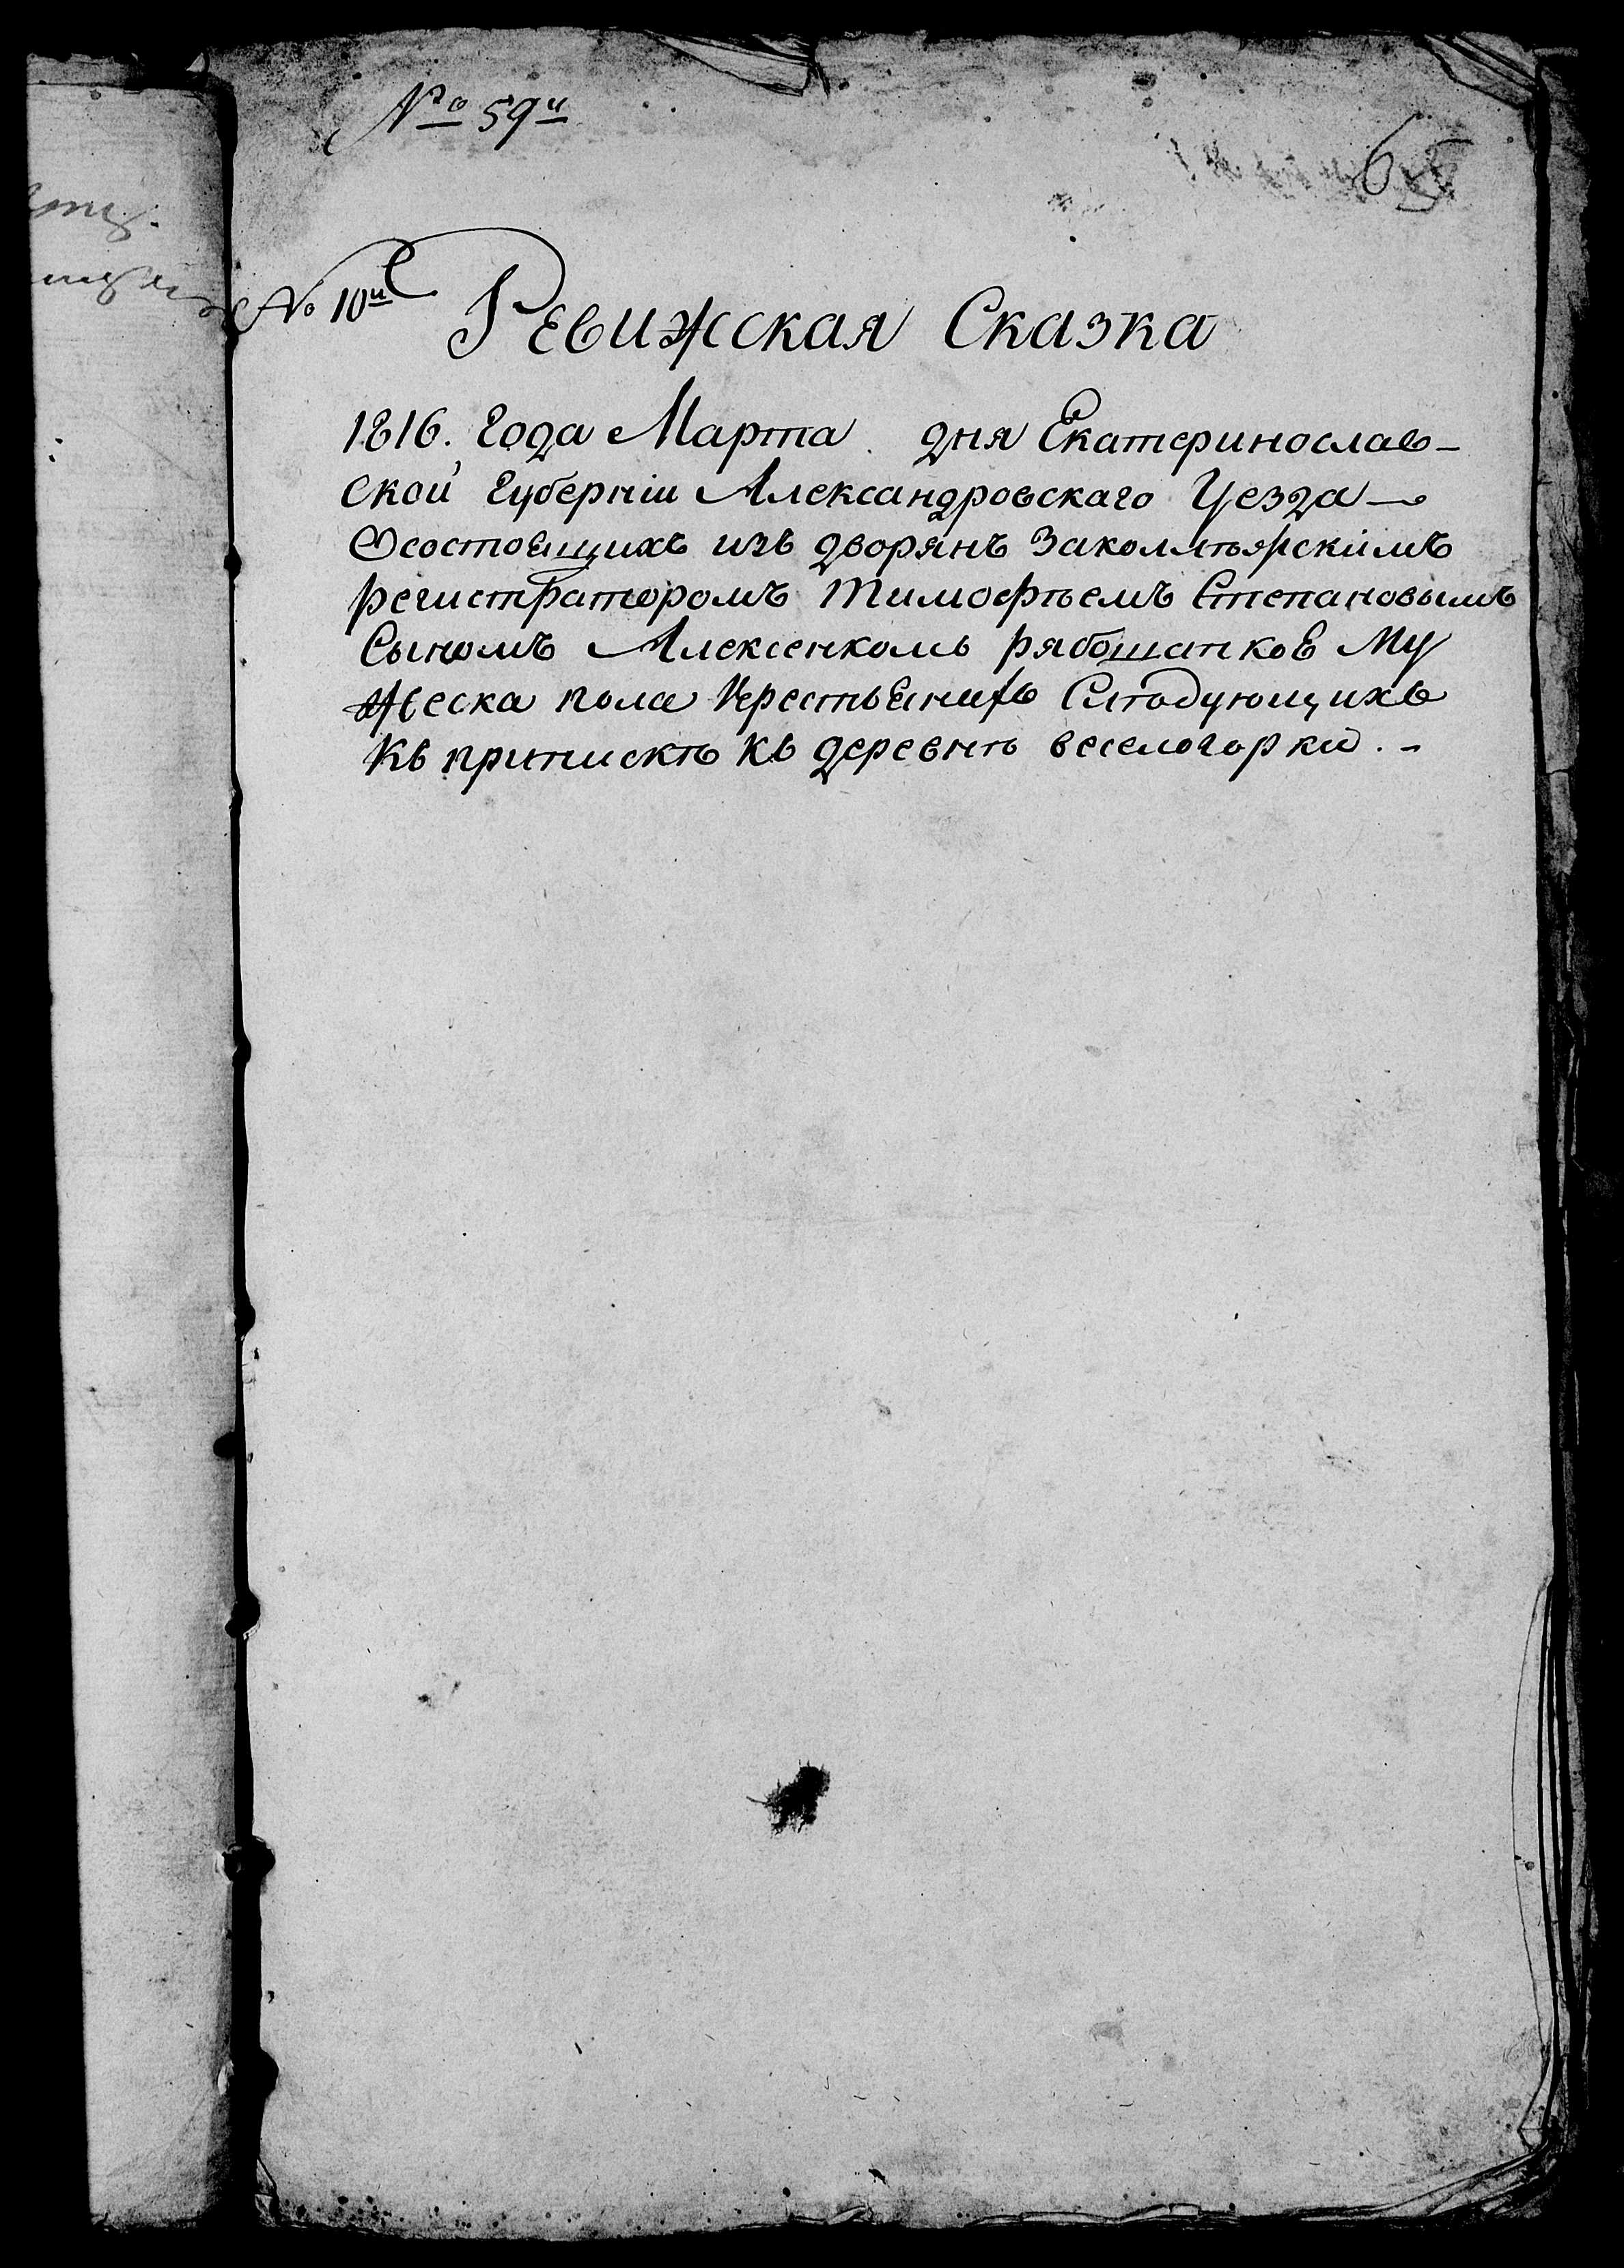 № 59й
65
№ 10й
Ревижская Сказка
1816. Года Марта . дня Екатеринослав-
ской губерніи Александровскаго Уезда
Осостоещихъ изъ дворянъ Заколлѣярскимъ
регистраторомъ Тимофѣемъ Степановымъ
Сыномъ Алексенкомъ рябошапкое Му
жеска пола Крестьенихъ Слѣдующихъ
Къ припискѣ къ деревнѣ веселогорки . -